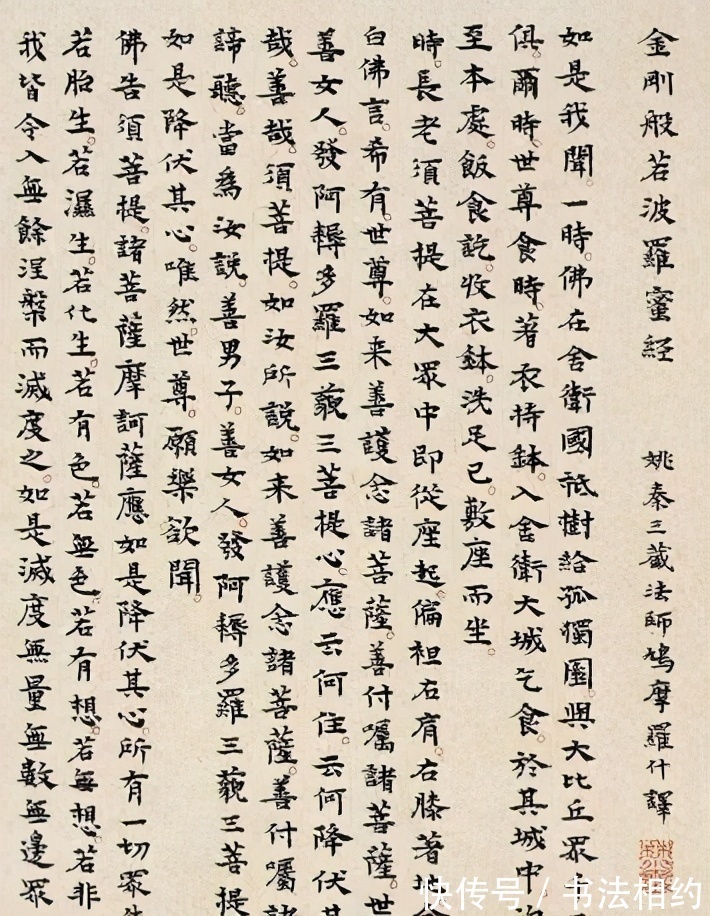 金剛般若波羅蜜経 姚秦三藏法師鳩摩羅什譯
如是我聞。一時。佛在舍衛國祇樹給孤獨園。與大比丘眾
俱。爾時世尊食時。著衣持鉢。入舍衛大城乞食。於其城中。
至本處。飯食訖。收衣鉢。洗足已。敷座而坐。
時。長老須菩提在大眾中即從座起。偏袒右肩。右膝著地。
白佛言。希有。世尊。如来善護念諸菩薩。善付囑諸菩薩。世
善女人。發阿耨多羅三藐三菩提心。應云何住。云何降伏其
哉。善哉。須菩提。如汝所說。如来善護念諸菩薩。善付囑諸
諦聽。當為汝說。善男子。善女人。發阿耨多羅三藐三菩提
如是降伏其心。唯然世尊。願樂欲聞。
佛告須菩提。諸菩薩摩訶薩應如是降伏其心。所有一切眾生
若胎生。若濕生。若化生。若有色。若無色。若有想。若無想。若非
我皆令入無餘涅槃而滅度之。如是滅度無量無數無邊眾
快传号 / 书法相约